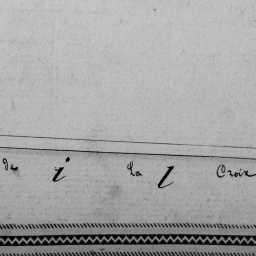 de i La l Croix